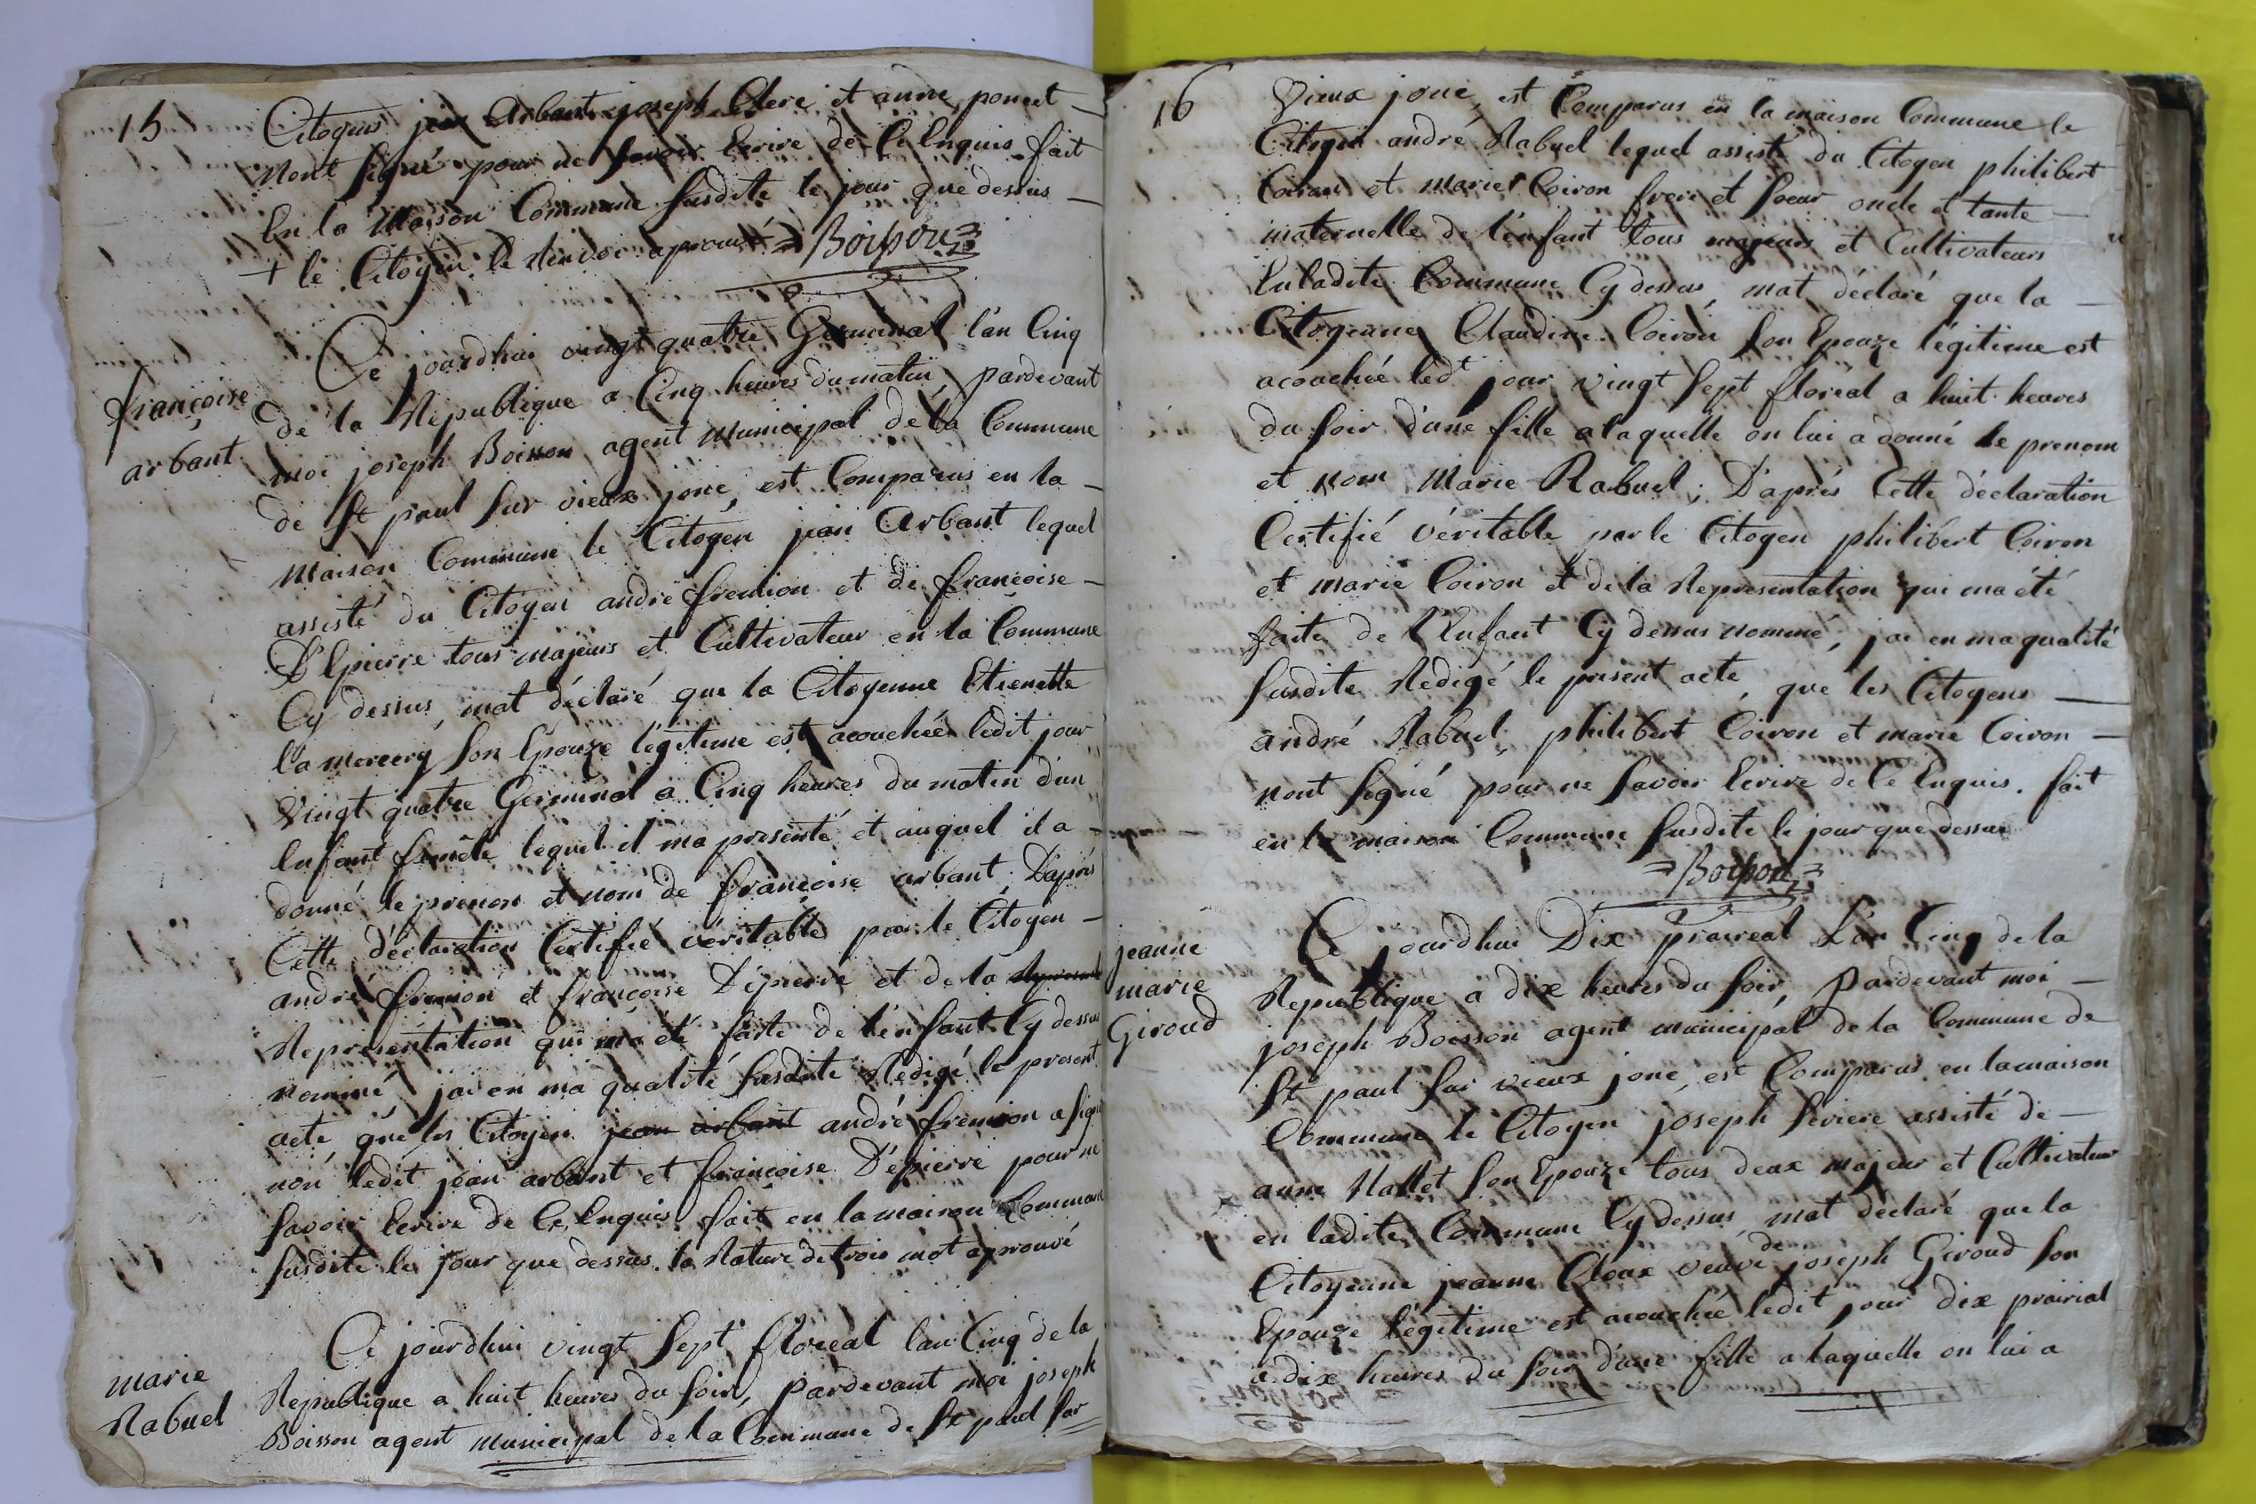 15
Citoyens jean Arbant joseph Clerc et anne poncet
nont signé pour ne savoir Ecrire de Ce Enquis fait
En la Maison Commune susdite le jour que dessus
+ le Citoyen le Renvoi aprouvé = Boisson
françoise
arbant
Ce jourdhui vingt quatre Germinal l'an Cinq
de la Republique a Cinq heures du matin, pardevant
moi joseph Boisson agent municipal de la Commune
de St paul sur vieux jonc, est Comparus en la
Maison Commune le Citoyen jean Arbant lequel
assisté du Citoyen andré fremion et de francoise
D'Epierre tous majeurs et Cultivateur en la Commune
Cy dessus, mat déclaré que la Citoyenne Etienette
la mercery son Epouze légitime est acouchée ledit jour
vingt quatre Germinal a Cinq heures du matin d'un
Enfant femele lequel il ma presenté et auquel il a
donné le prenom et nom de françoise arbant; D'aprés
Cette déclaration Certifié véritable par le Citoyen
andré fremion et françoise D'épierre et de la
Représentation qui ma été faite de l'enfant Cy dessus
nommé, jai en ma qualité susdite Redigé le present
acte que les Citoyen jean arbant andré fremion a signé
nón ledit jean arbant et francoise D'épierre pour ne
savoir Ecrire de Ce Enquis. fait en la maison Commune
susdite le jour que dessus. la Rature de trois mot aprouvé
marie
Rabuel
Ce jourdhui vingt Sept floreal lan Cinq de la
Republique a huit heures du soir, pardevant moi joseph
Boisson agent municipal de la Commune de St paul sur
16
Vieux jonc, est Comparus en la maison Commune le
Citoyen andré Rabuel lequel assisté du Citoyen philibert
Coiron et marie Coiron frere et soeur oncle et tante
maternelle de l'enfant tous majeurs et Cultivateurs
En ladite Commune Cy dessus, mat déclaré que la
Citoyenne Claudine Coiron son Epouze légitime est
acouchée ledt jour vingt Sept floréal a huit heures
du soir d'une fille a laquelle on lui a donné le prenom
et nom Marie Rabuel; D'aprés Cette déclaration
Certifié véritable par le Citoyen philibert Coiron
et marie Coiron et de la Representation qui ma été
faite de l'Enfant Cy dessus nommé, jai en ma qualité
susdite Redigé le présent acte, que les Citoyens
andré Rabuel, philibert Coiron et marie Coiron
nont signé pour ne savoir Ecrire de Ce Enquis. fait
en la maison Commune susdite le jour que dessus
= Boisson
jeanne
marie
Giroud
Ce jourdhui Dix prairéal L'an Cinq de la
Republique a dix heures du soir, Pardevant moi
joseph Boisson agent municipal de la Commune de
St paul sur vieux jonc, est Comparus en la maison
Commune le Citoyen joseph Riviere assisté de
anne Mallet son Epouze tous deux majeur et Cultivateur
en ladite Commune Cy dessus, mat déclaré que la
Citoyenne jeanne Cloux veuve de joseph Giroud son
Epouze légitime est acouchée ledit jour dix prairial
a dix heures du soir d'une fille a laquelle on lui a